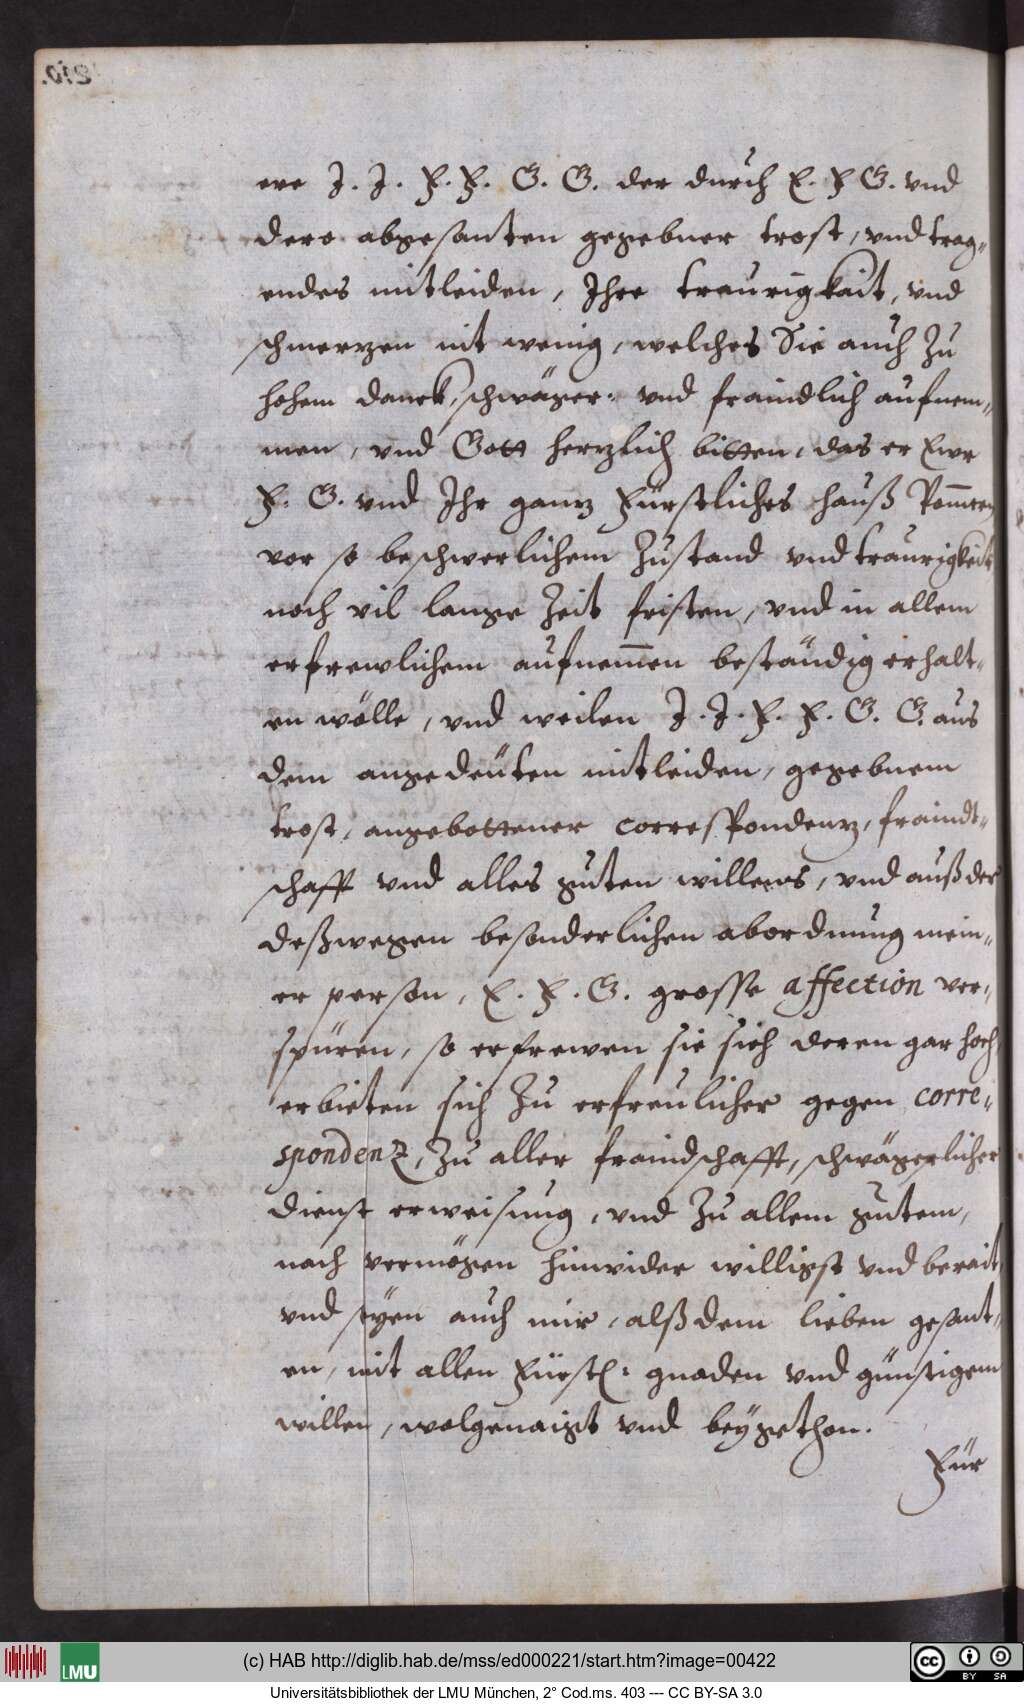 ere J. J. F. F. G. G. der durch E. F G. vnd
dero abgesanten gegebner trost, vnd trag„
endes mitleiden, Ihre traurigkait, vnd
schmerzen nit wenig, welches Sie auch Zu
hohem danck, schwäger: vnd fraindlich aufnem„
men, vnd Gott herzlich bitten, das er Ewr
F: G. vnd Ihr ganz Fürstliches hauß Pom̄ern
vor so beschwerlichem Zustand vnd traurigkeit
noch vil lange Zeit fristen, vnd in allem
erfrewlichem aufnem̄en beständig erhalt„
en wölle, vnd weilen J. J. F. F. G. G. aus
dem angedeüten mitleiden, gegebnem
trost, angebottener correspondenz, fraindt„
schafft vnd alles guten willens, vnd auß der
deßwegen besonderlichen abordnung mein„
er person, E. F. G. grosse affection ver„
spüren, so erfrewen sie sich deren gar hoch,
erbieten sich Zu erfreulicher gegen corre„
spondenz, Zu aller fraindschafft, schwägerlicher
dienst erweisung, vnd Zu allem gutem,
nach vermögen hinwider willigst vnd berait
vnd seyen auch mir, alß dem lieben gesant„
en, mit allen Fürstl: gnaden vnd günstigem
willen, wolgenaigt vnd beygethon.
Für
(c) HAB http://diglib.hab.de/mss/ed000221/start.htm?image=00422
LMU
cc BY SA
Universitätsbibliothek der LMU München, 2° Cod.ms. 403 --- CC BY-SA 3.0